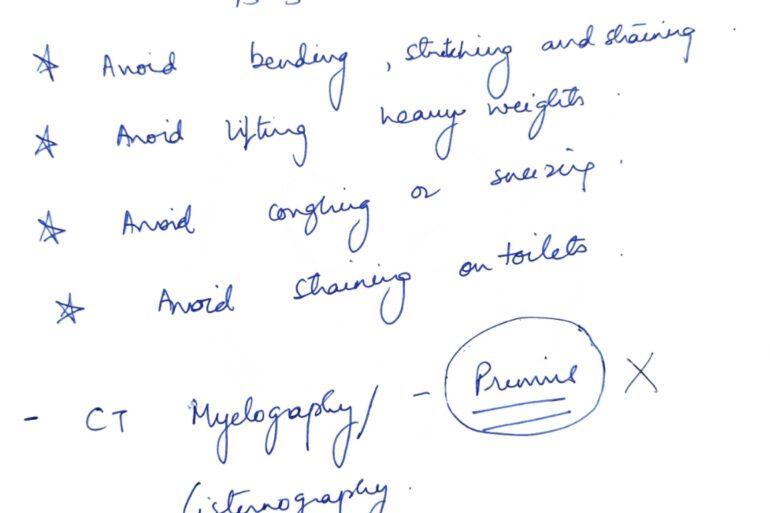 ☆ Avoid bending, stretching and straining
☆ Avoid lifting heavy weights.
☆ Avoid coughing or sneezing.
☆ Avoid straining on toilets.
- CT Myelography/ - X
Cisternography.